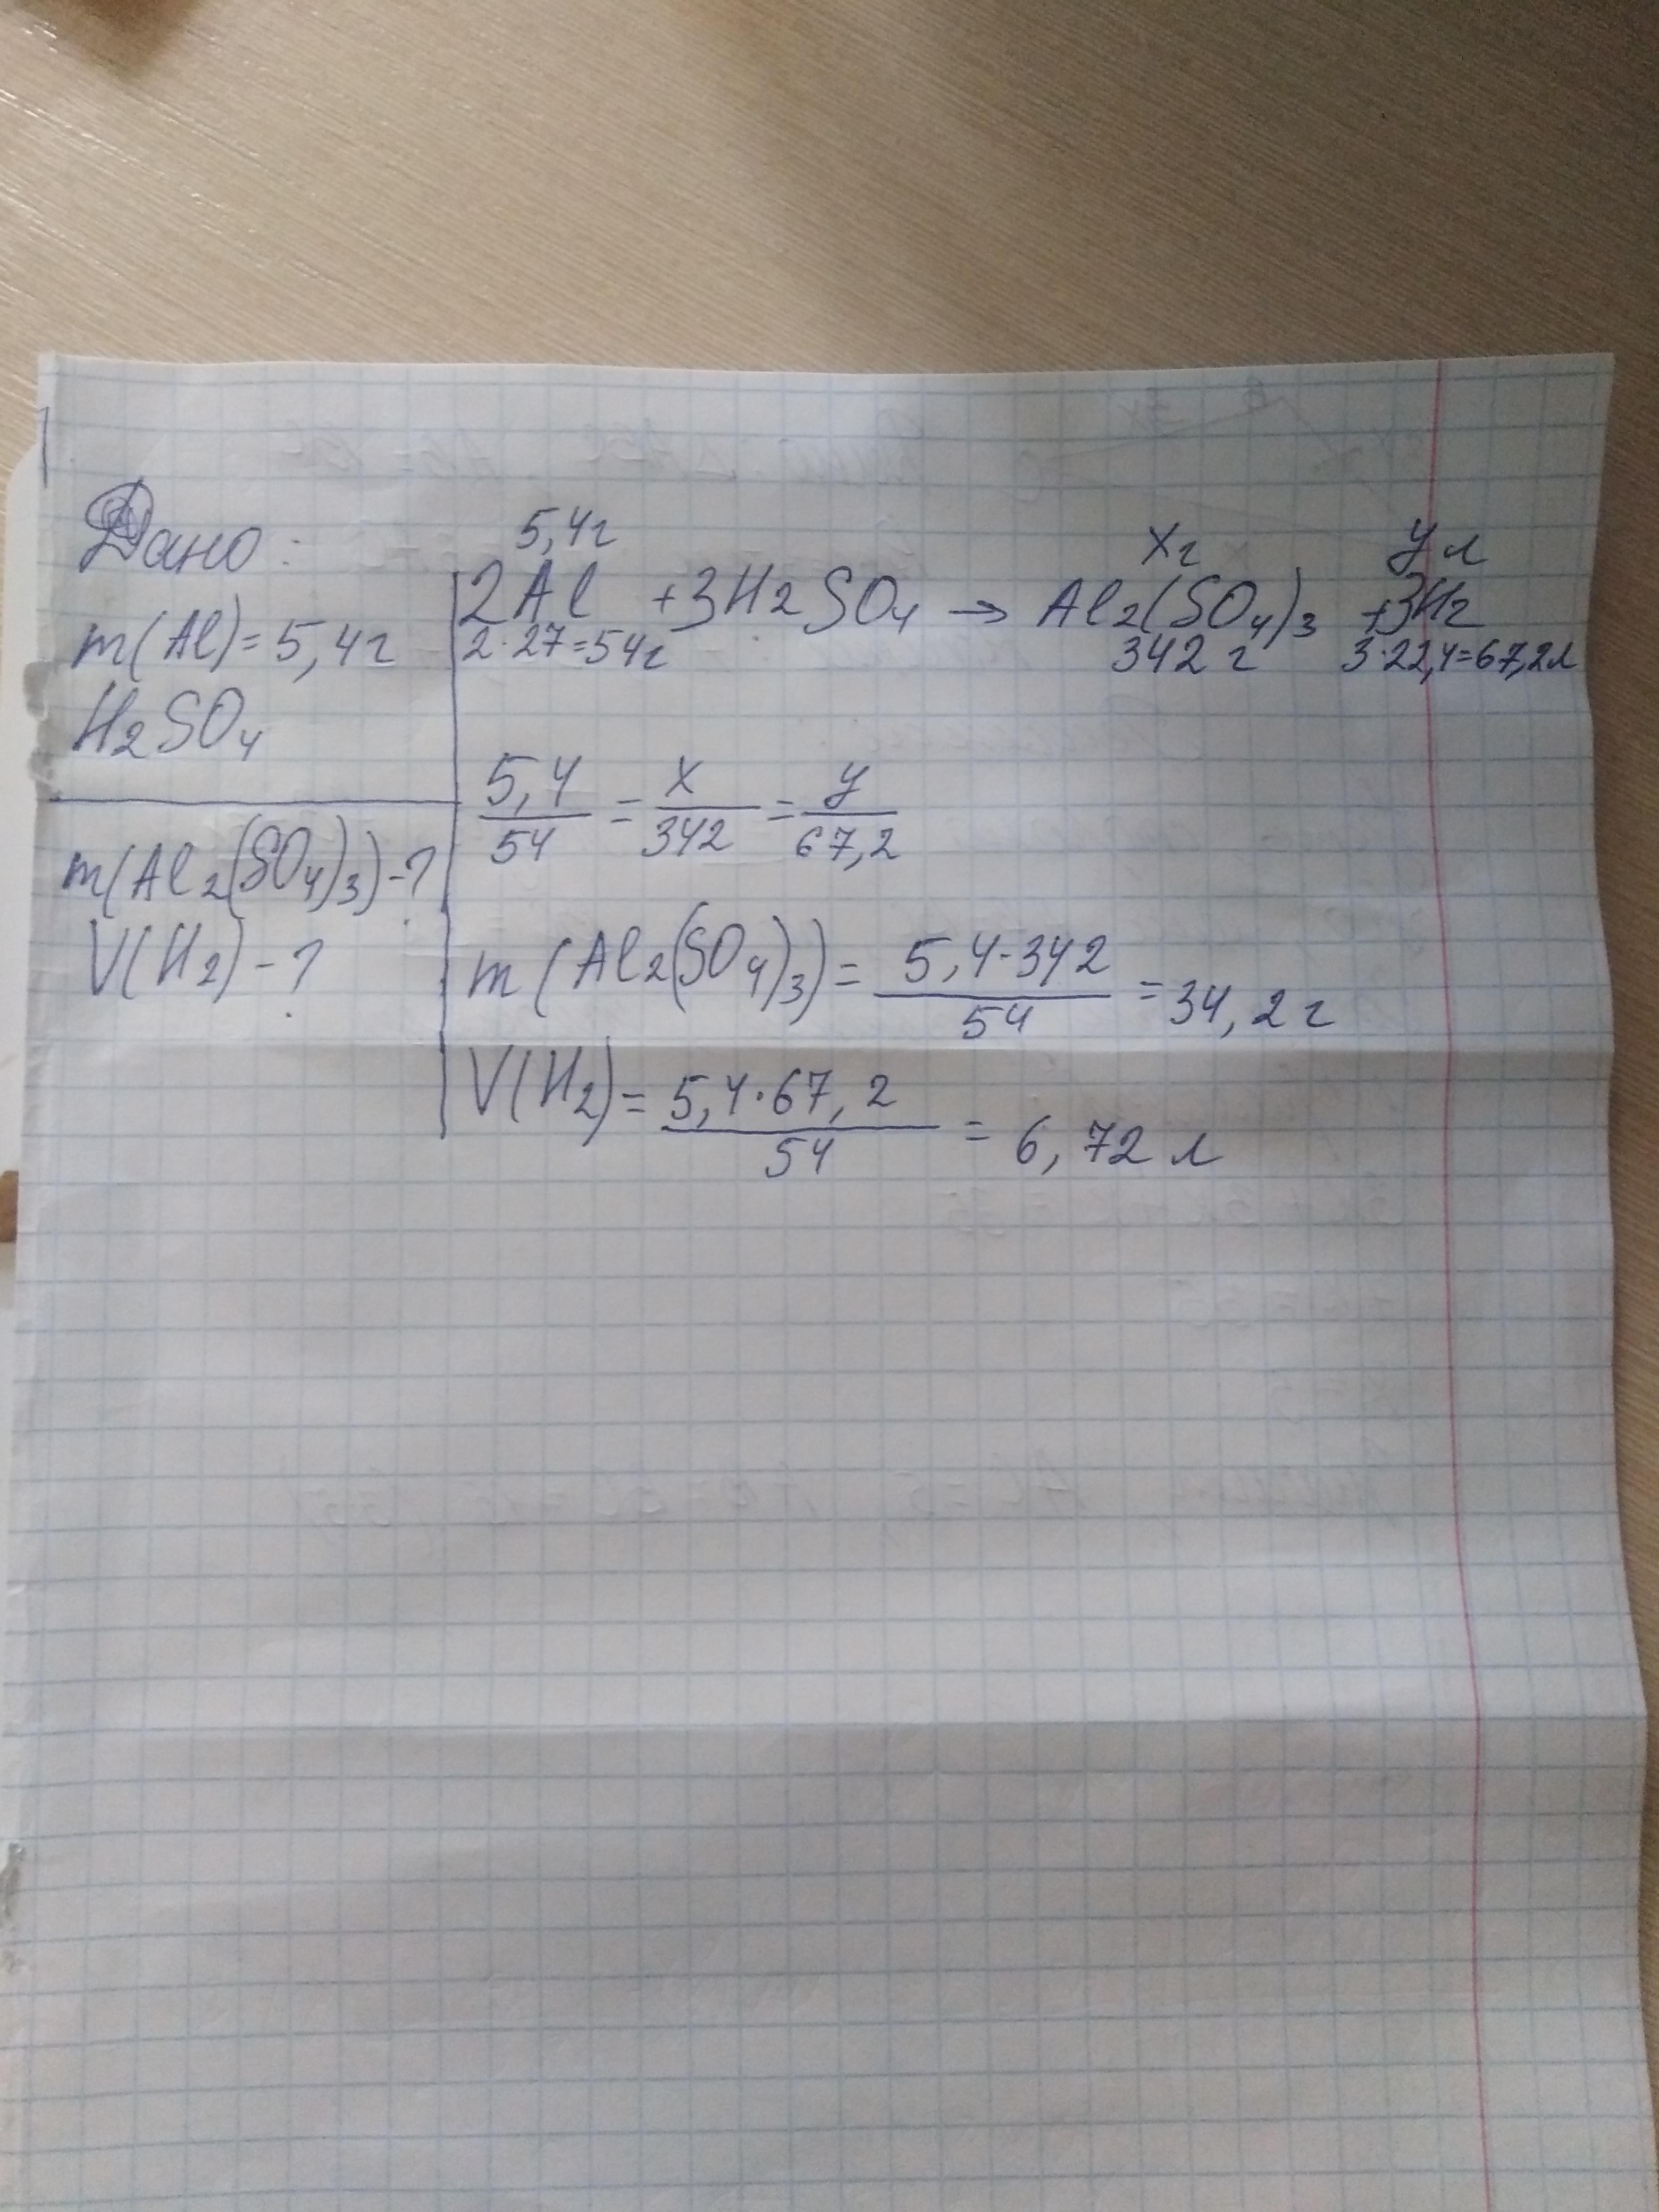 Дано:
m(Al)=5,4г
H2SO4
m(Al2(SO4)3)-?
V(H2)-?
5,4г xг yл
2Al +3H2SO4 → Al2(SO4)3 +3H2
2·27=54г 342 г 3·22,4=67,2л
5,4/54 = x/342 = y/67,2
m(Al2(SO4)3)= 5,4·342/54 = 34,2 г
V(H2)= 5,4·67,2/54 = 6,72 л